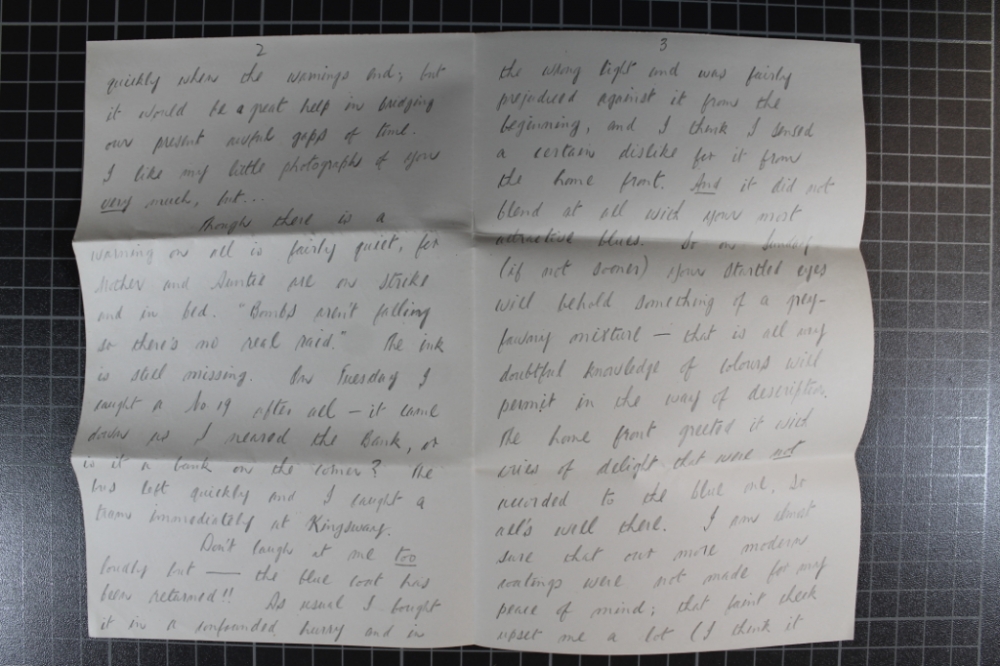 2
quickly when the warnings end; but
it would be a great help in bridging
our present awful gaps of time.
I like my little photographs of you
very much, but...
Though there is a
warning on all is fairly quiet, for
Mother and Auntie are on strike
and in bed. "Bombs aren't falling
so there's no real raid." The ink
is still missing. On Tuesday I
caught a No 19 after all — it came
down as I neared the Bank, or
is it a bank on the corner? The
bus left quickly and I caught a
tram immediately at Kingsway.
Don't laugh at me too
loudly but — the blue coat has
been returned!! As usual I bought
it in a confounded hurry and in
3
the wrong light and was fairly
prejudiced against it from the
beginning, and I think I sensed
a certain dislike for it from
the home front. And it did not
blend at all with your most
attractive blues. So on Sunday
(if not sooner) your startled eyes
will behold something of a grey-
fawny mixture — that is all my
doubtful knowledge of colours will
permit in the way of description.
The home front greeted it with
cries of delight that were not
accorded to the blue one, so
all's well there. I am almost
sure that our more modern
coatings were not made for my
peace of mind; that faint check
upset me a lot (I think it